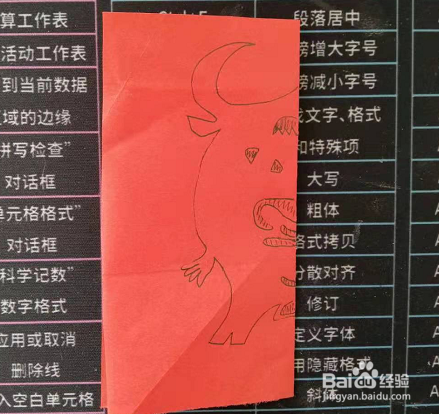 算工作表
段落居中
活动工作表
增大字号
到当前数据
减小字号
域的边缘
文字、格式
拼写检查"
和特殊项
对话框
大写
单元格格式"
粗体
对话框
格式拷贝
科学记数"
分散对齐
数字格式
修订
应用或取消
定义字体
删除线
用隐藏格式
入空白单元格
斜体
Baidu经验
jingyan.baidu.com